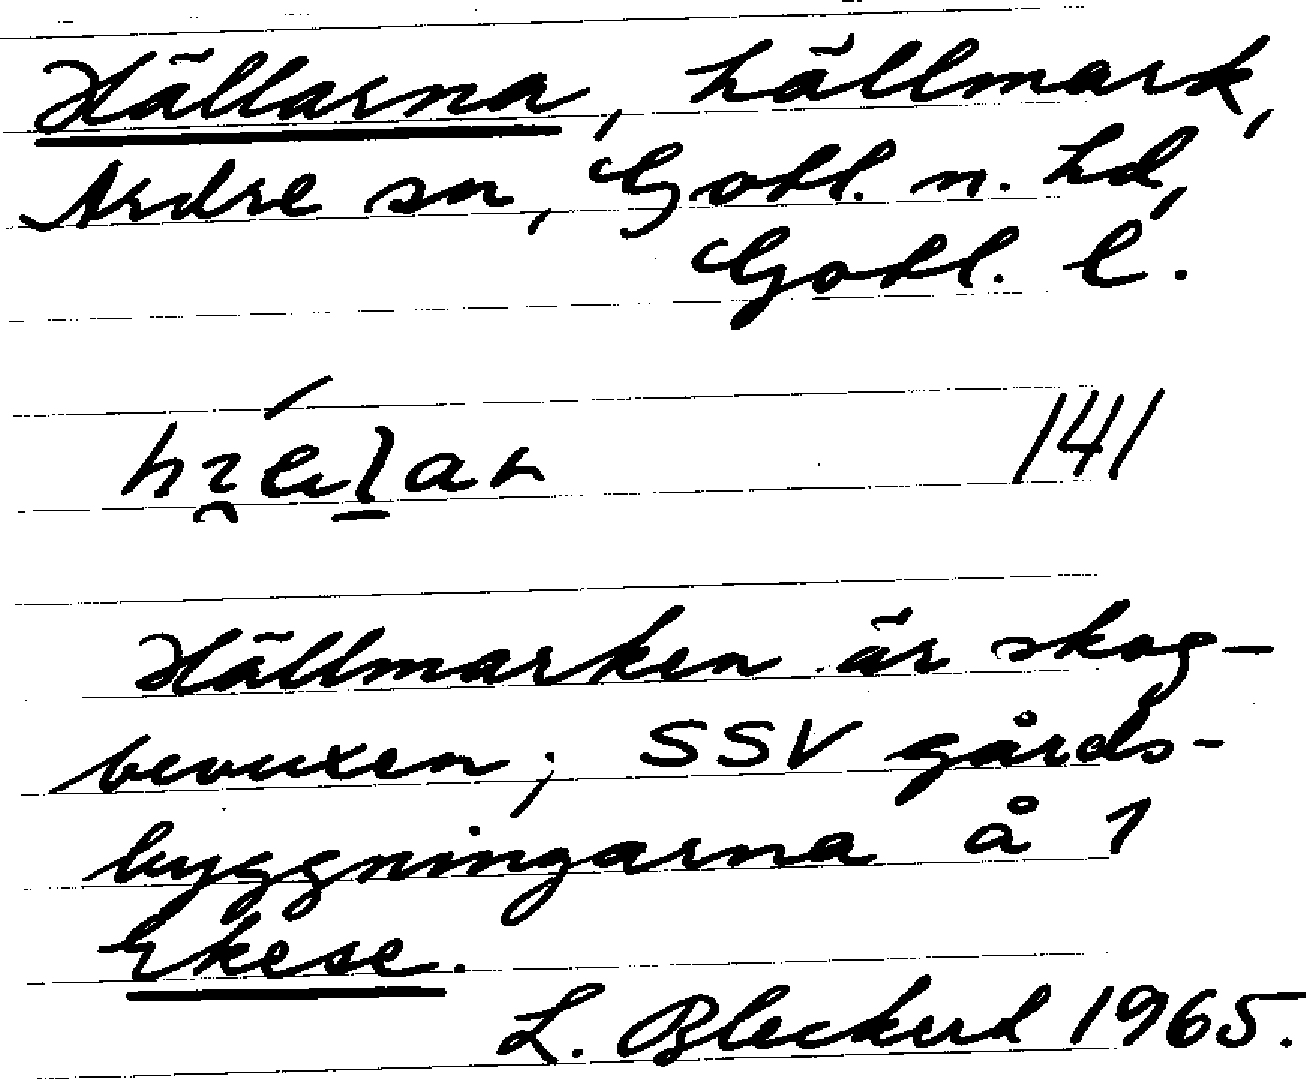 Hällarna, hällmark,
Ardre sn, Gotl. n. hd,
Gotl. l.
141
Hällmarken är skog-
bevuxen; SSV gårds-
byggningarna å 1
Ekese.
L. Bleckerd 1965.